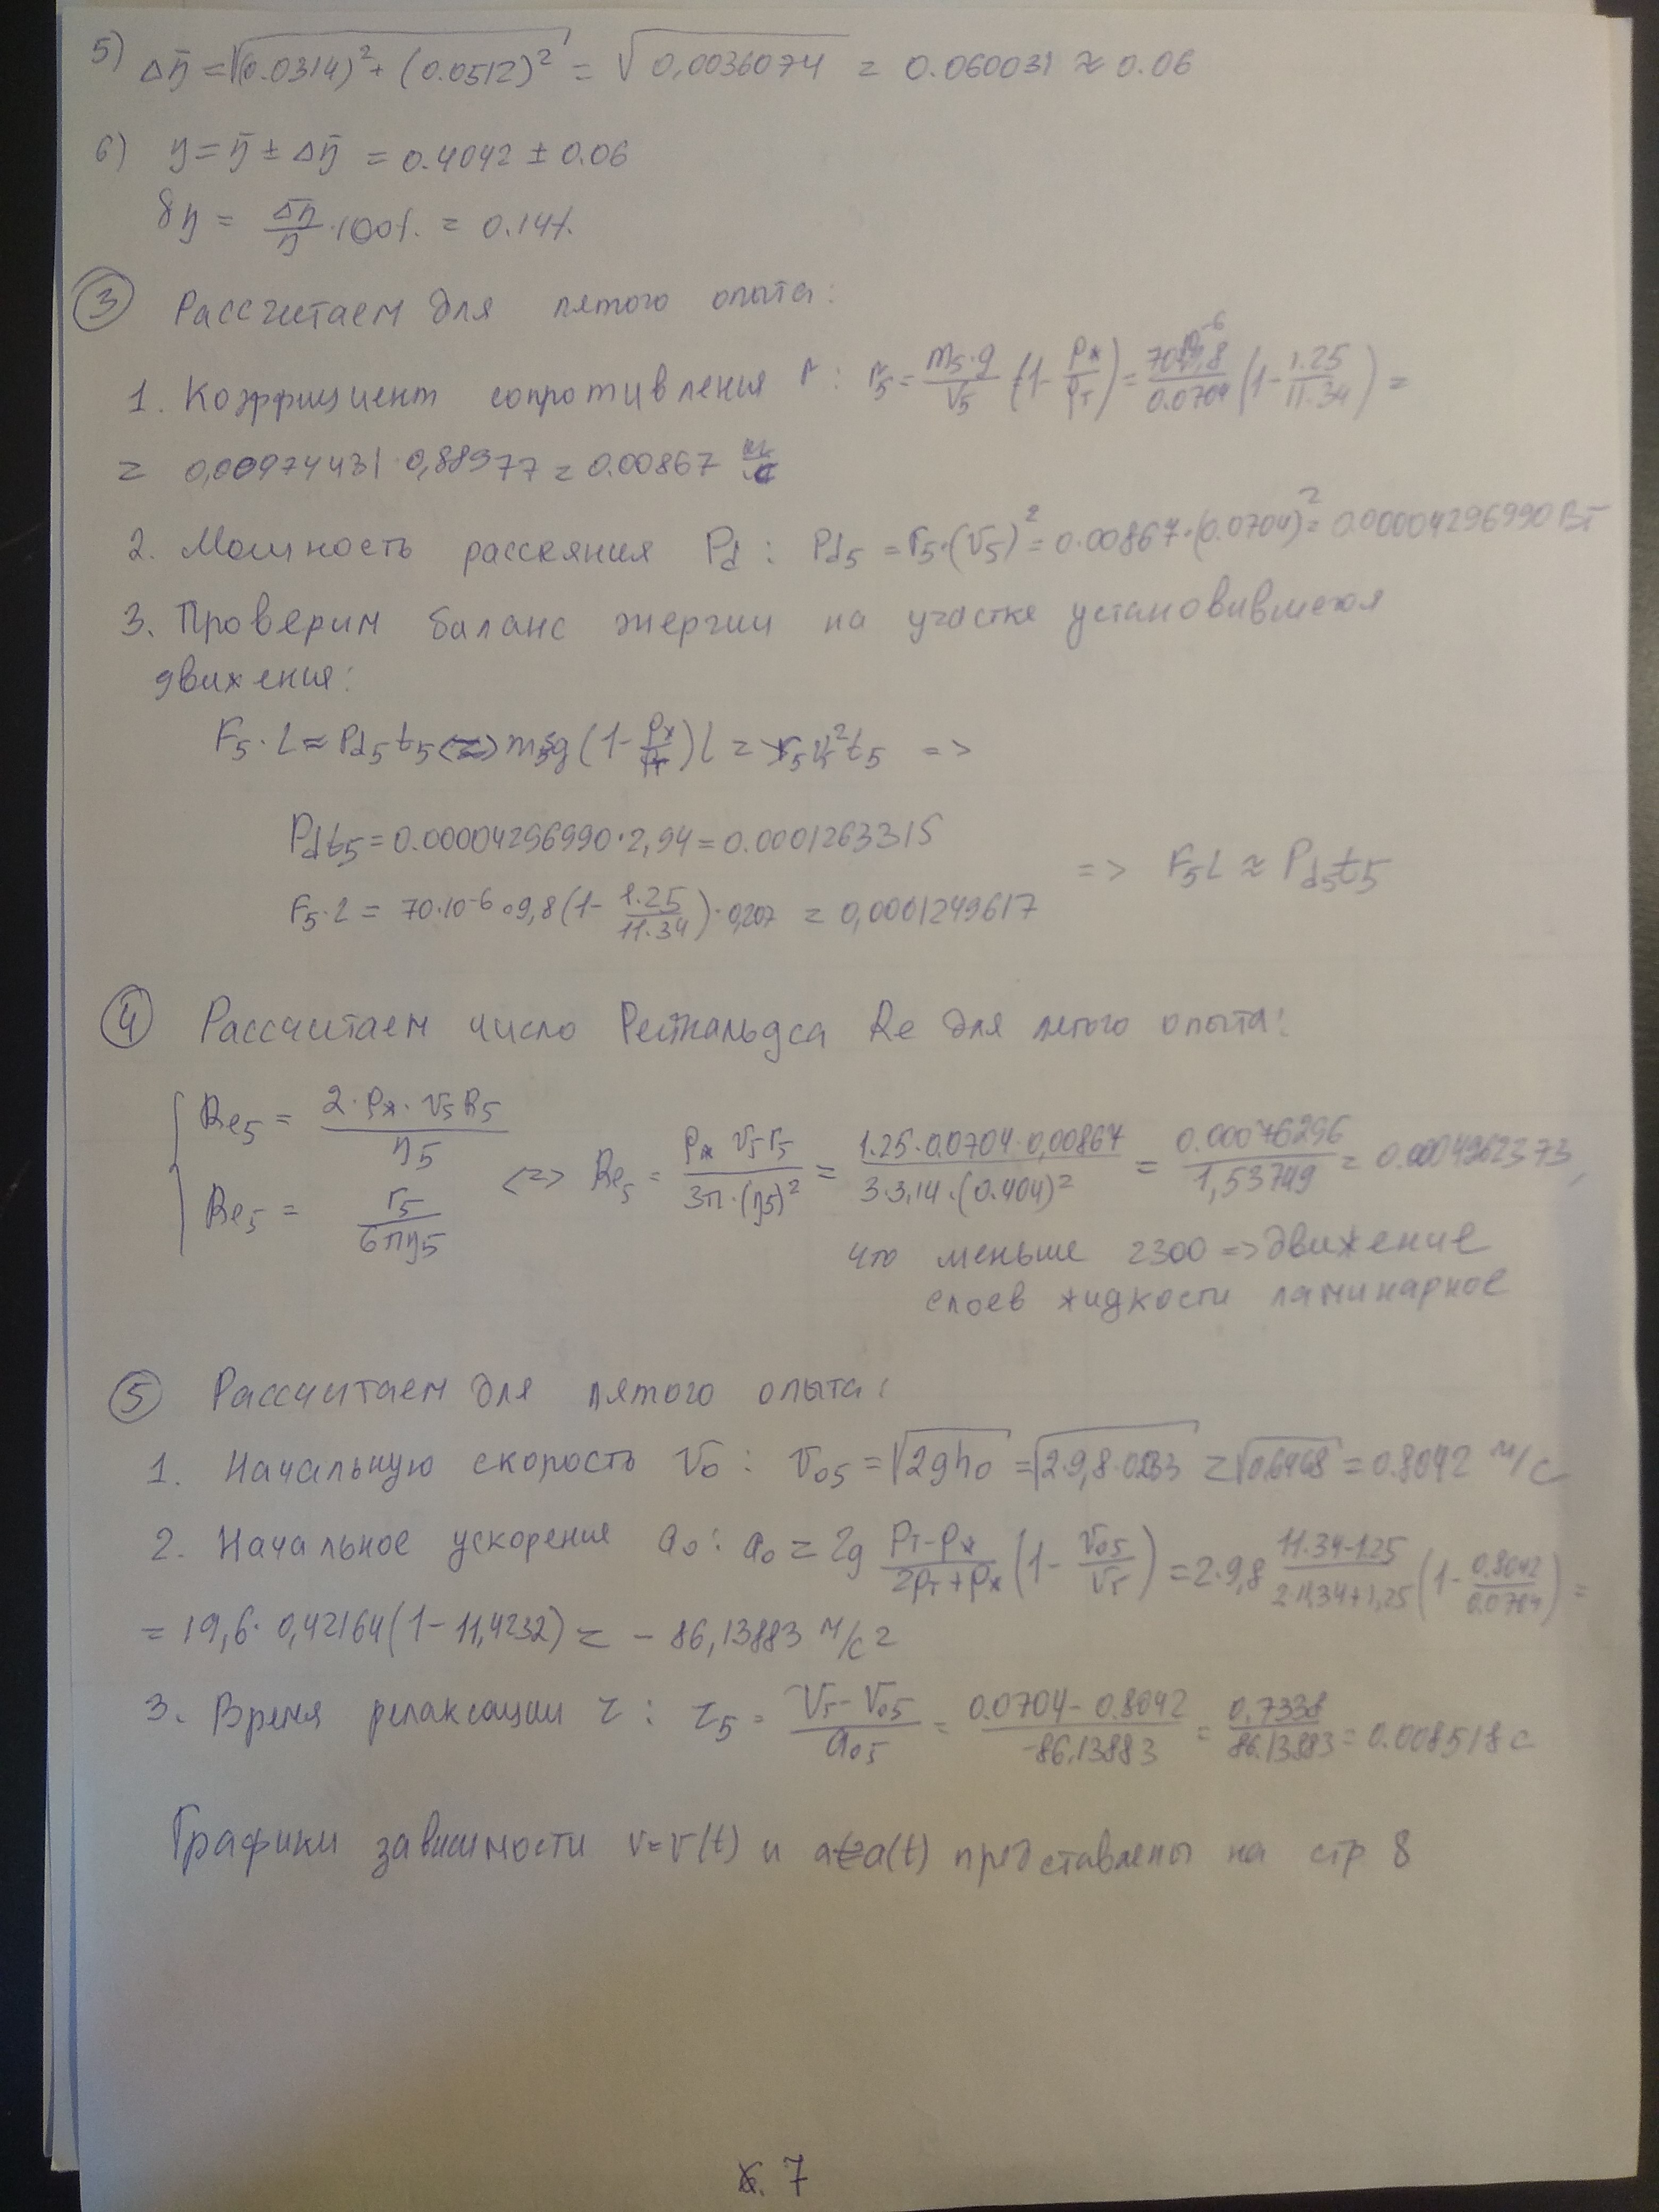 5) Δη̄ = √((0.0314)² + (0.0512)²) = √0,0036074 = 0.060031 ≈ 0.06
6) η = η̄ ± Δη̄ = 0.4042 ± 0.06
δη = Δη̄/η̄ · 100% = 0.14%
③ Рассчитаем для пятого опыта:
1. Коэффициент сопротивления r: r₅ = m₅·g/v₅ (1 - ρж/ρт) = 70·10⁻⁶·9,8/0.0704 (1 - 1.25/11.34) =
= 0,00974431 · 0,88977 = 0.00867 кг/с
2. Мощность рассеяния Pd: Pd₅ = r₅·(v₅)² = 0.00867·(0.0704)² = 0.00004296990 Вт
3. Проверим баланс энергии на участке установившегося
движения:
F₅·L ≈ Pd₅t₅ <=> m₅g(1 - ρж/ρт)L = r₅v₅²t₅ =>
Pdt₅ = 0.00004296990·2,94 = 0.0001263315
F₅·L = 70·10⁻⁶·9,8(1 - 1.25/11.34)·0,207 = 0,0001249617
=> F₅L ≈ Pd₅t₅
④ Рассчитаем число Рейнольдса Re для пятого опыта:
Re₅ = 2·ρж·v₅R₅/η₅
Re₅ = r₅/6πη₅
<=> Re₅ = ρж v₅r₅/3π·(η₅)² = 1.25·0.0704·0,00867/3·3,14·(0.404)² = 0.00076296/1,53749 = 0.0004962373,
что меньше 2300 => движение
слоев жидкости ламинарное
⑤ Рассчитаем для пятого опыта:
1. Начальную скорость v₀: v₀₅ = √2gh₀ = √2·9,8·0.033 = √0,6468 = 0.8042 м/с
2. Начальное ускорения a₀: a₀ = 2g ρт-ρж/2ρт+ρж (1 - v₀₅/v₅) = 2·9,8 11.34-1.25/2·11,34+1,25 (1 - 0.8042/0.0704) =
= 19,6·0,42164(1 - 11,4232) = - 86,13883 м/с²
3. Время релаксации τ: τ₅ = v₅-v₀₅/a₀₅ = 0.0704-0.8042/-86,13883 = 0,7338/86.13883 = 0.008518 с
Графики зависимости v=v(t) и a=a(t) представлены на стр 8
7